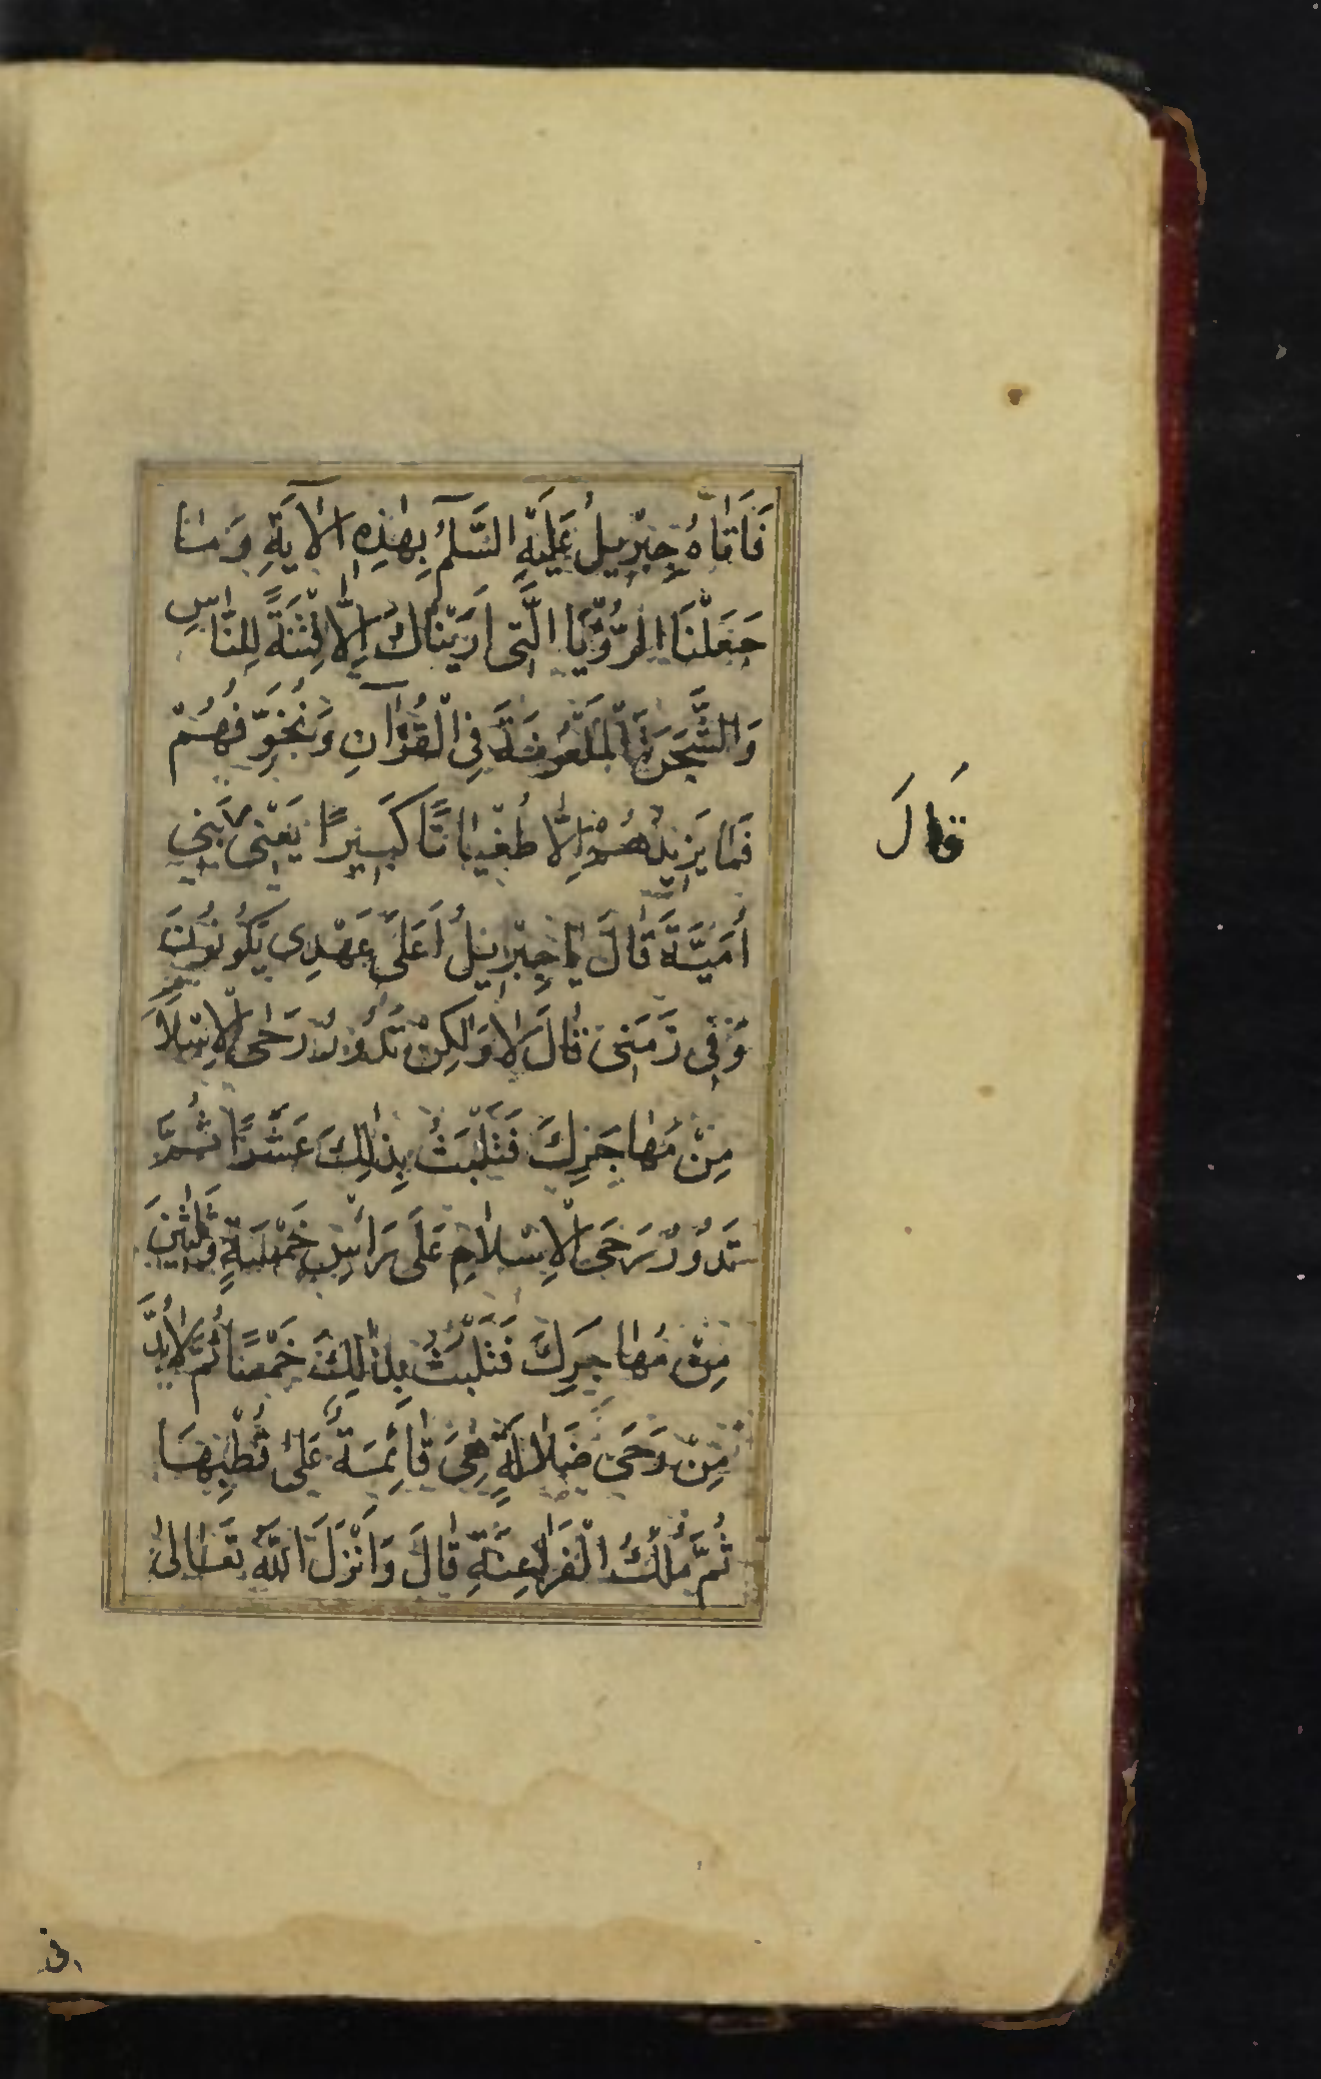 فَاَتَاهُ جِبْرِيلُ عَلَيْهِ السَّلَمُ بِهٰذِهِ الْاٰيَةِ وَمَا
جَعَلْنَا الرُّؤْيَا الَّتِى اَرَيْنَاكَ اِلَّا فِتْنَةً لِلنَّاسِ
وَالشَّجَرَةَ الْمَلْعُونَةَ فِى الْقُرْآنِ وَنُخَوِّفُهُمْ
فَمَا يَزِيدُهُمْ اِلَّا طُغْيَانًا كَبِيرًا يَعْنِى بَنِي
قَالَ
اُمَيَّةَ قَالَ يَا جِبْرِيلُ اَعَلَى عَهْدِى يَكُونُونَ
وَفِى زَمَنِى قَالَ لَا وَلٰكِنْ تَدُورُ رَحَى الْاِسْلَامِ
مِنْ مُهَاجَرِكَ فَتَلْبَثُ بِذٰلِكَ عَشْرًا ثُمَّ
تَدُورُ رَحَى الْاِسْلَامِ عَلَى رَاْسِ خَمْسَةٍ وَثَلٰثِينَ
مِنْ مُهَاجَرِكَ فَتَلْبَثُ بِذٰلِكَ خَمْسًا ثُمَّ لَا بُدَّ
مِنْ رَحَى ضَلَالَةٍ هِىَ قَائِمَةٌ عَلٰى قُطْبِهَا
ثُمَّ مُلْكُ الْفَرَاعِنَةِ قَالَ وَاَنْزَلَ اللّٰهُ تَعَالٰى